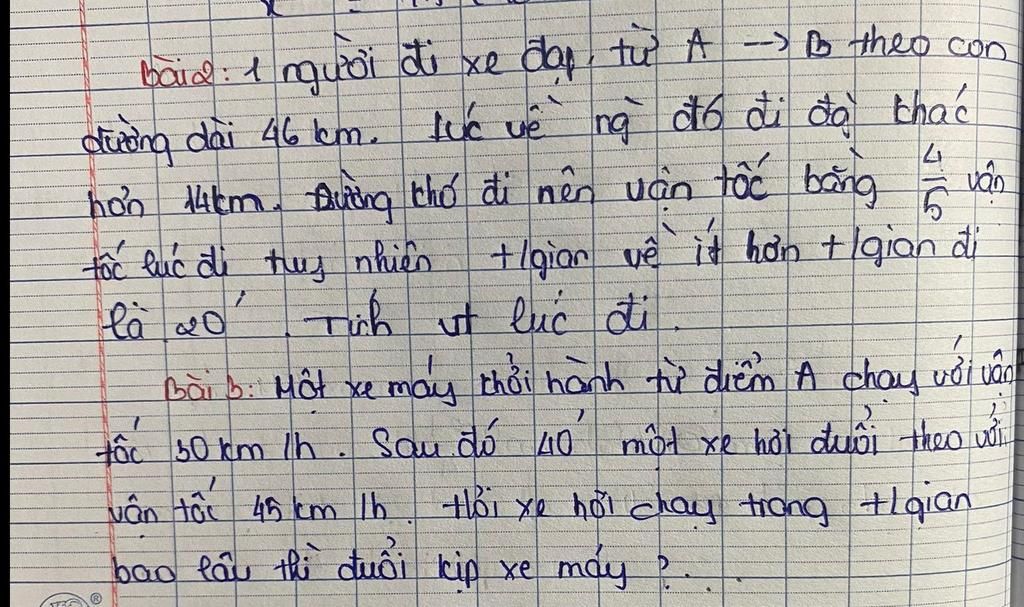 bài 2: 1 người đi xe đạp từ A → B theo con
đường dài 46 km. lúc về ng đó đi đg khác
hơn 14km. Đường khó đi nên vận tốc bằng 4/5 vận
tốc lúc đi tuy nhiên t/gian về ít hơn t/gian đi
là 20'. Tính vt lúc đi.
Bài 3: Một xe máy khởi hành từ điểm A chạy với vận
tốc 30 km/h. Sau đó 40' một xe hơi đuổi theo với
vận tốc 45 km/h. Hỏi xe hơi chạy trong t/gian
bao lâu thì đuổi kịp xe máy ?